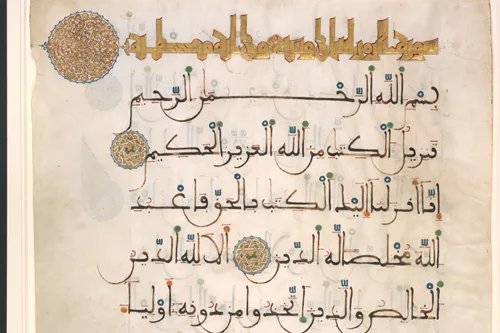 سورة الزمر
بسم الله الرحمن الرحيم
تنزيل الكتب من الله العزيز الحكيم
إنا أنزلنا إليك الكتب بالحق فاعبد
الله مخلصا له الدين ألا لله الدين
الخالص والذين اتخذوا من دونه أوليا